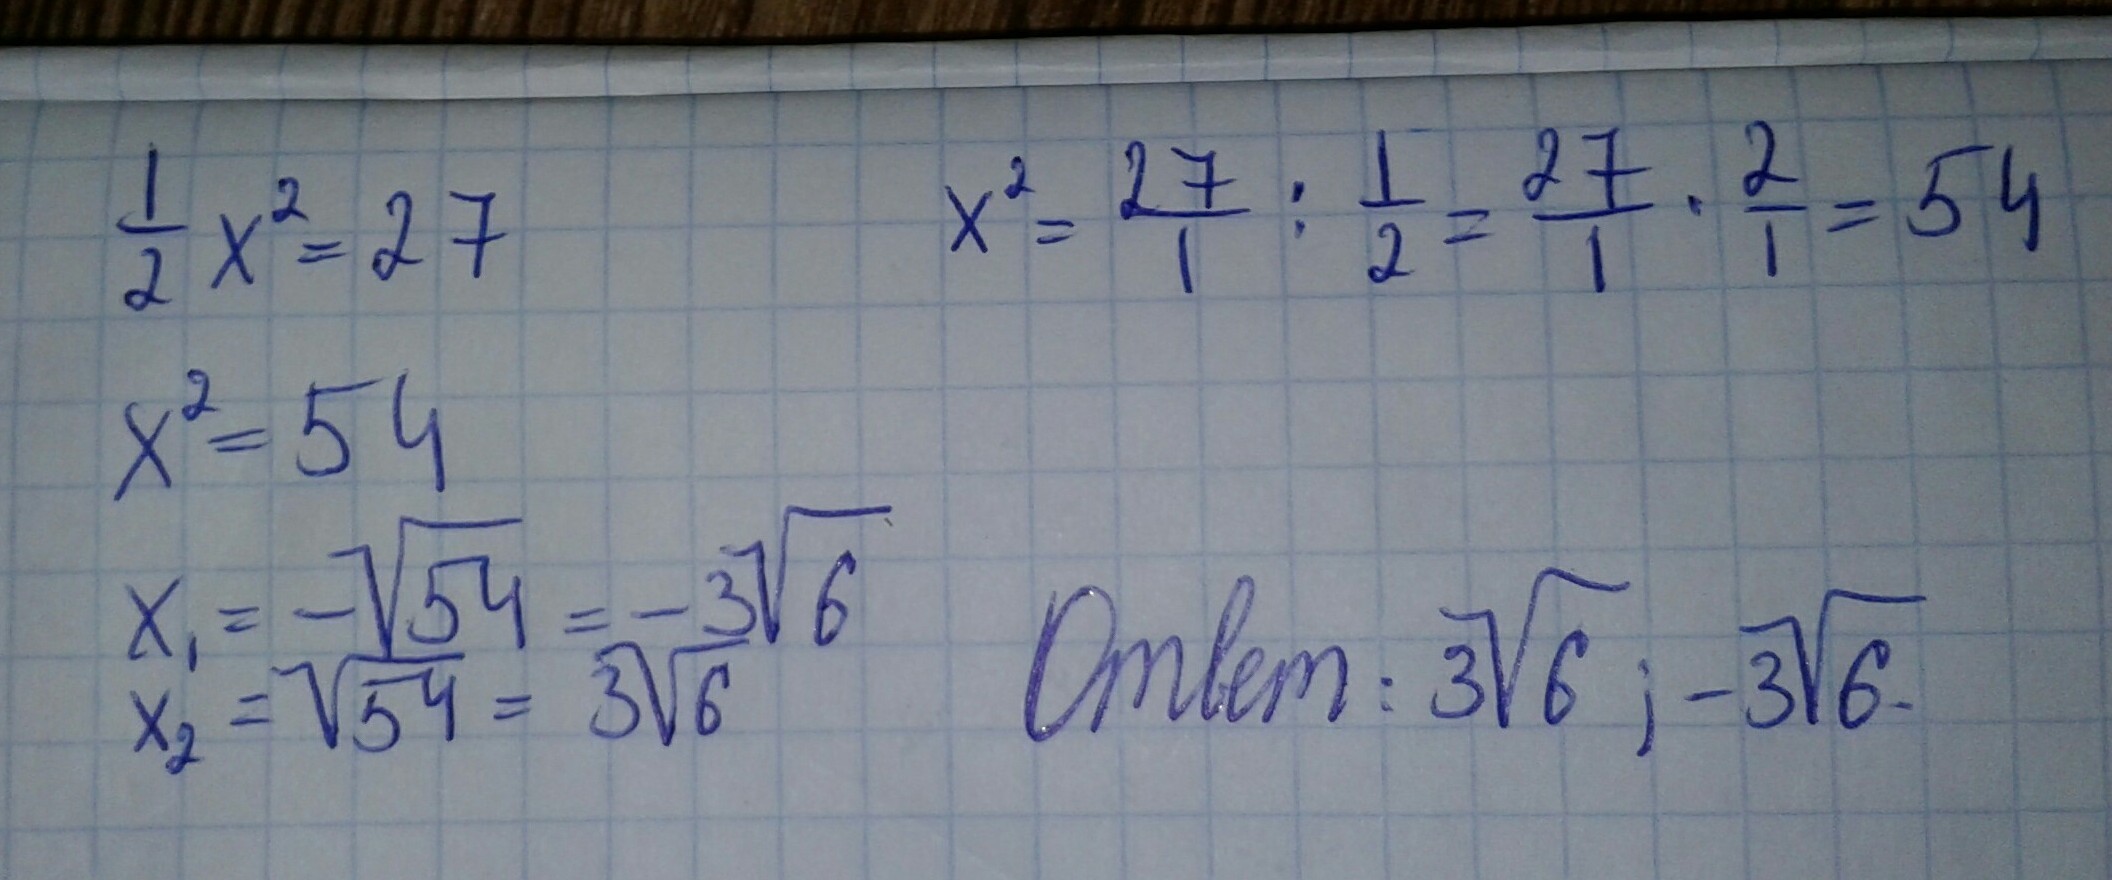 1/2 x² = 27
x² = 27/1 : 1/2 = 27/1 · 2/1 = 54
x² = 54
x₁ = -√54 = -3√6
x₂ = √54 = 3√6
Ответ: 3√6 ; -3√6.